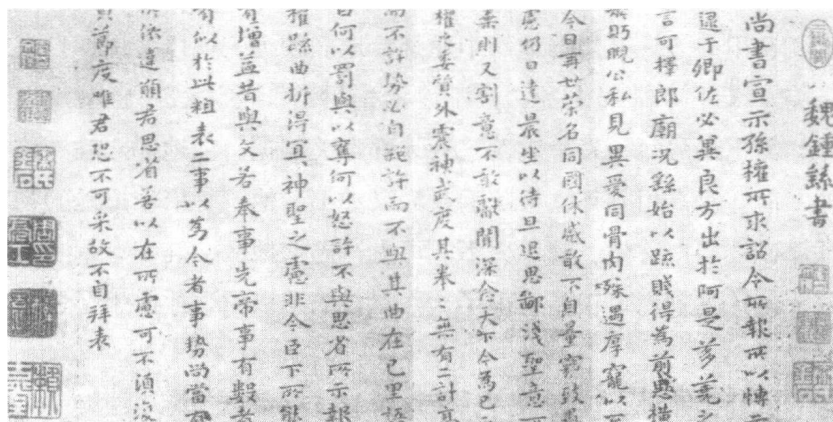 魏鍾繇書
尚書宣示孫權所求詔令所報所以博示
逮于卿佐必冀良方出於阿是芻蕘之
言可擇郎廟況繇始以疏賤得為前恩橫
所盱睨公私見異愛同骨肉殊遇厚寵以至
今日再世榮名同國休慼敢不自量竊致愚
慮仍日達晨坐以待旦退思鄙淺聖意所
棄則又割意不敢獻聞深念天下今為已平
權之委質外震神武度其拳〻無有二計高
而不許勢必自絕許而不與其曲在己里語
曰何以罰與以奪何以怒許不與思省所示報
權疏曲折得宜神聖之慮非今臣下所能
有增益昔與文若奉事先帝事有數者
有似於此粗表二事以為今者事勢尚當有
所依違願君思省若以在所慮可不須復
貌節度唯君恐不可采故不自拜表